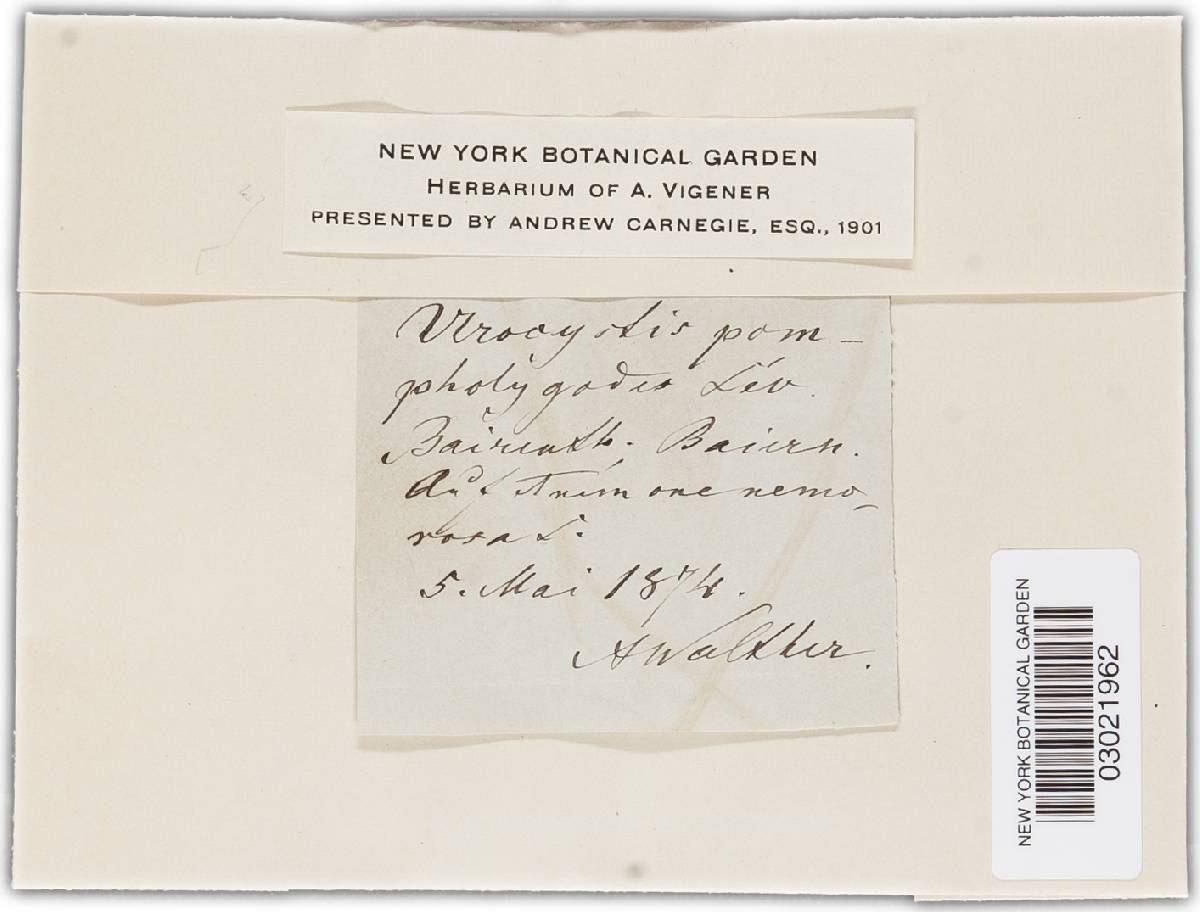 NEW YORK BOTANICAL GARDEN
HERBARIUM OF A. VIGENER
PRESENTED BY ANDREW CARNEGIE, ESQ., 1901
Urocystis pom-
pholygodes Lév.
Baireuth. Baiern.
Auf Anemone nemo-
rosa L.
5. Mai 1874.
A Walther.
NEW YORK BOTANICAL GARDEN
03021962